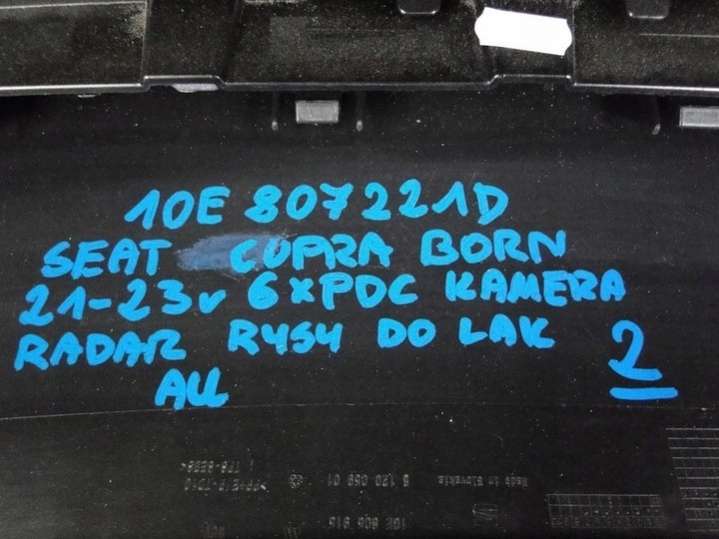 10E 807221D
SEAT CUPRA BORN
21-23r 6xPDC KAMERA
RADAR RYSY DO LAK 2
ALL
Made in Slovakia